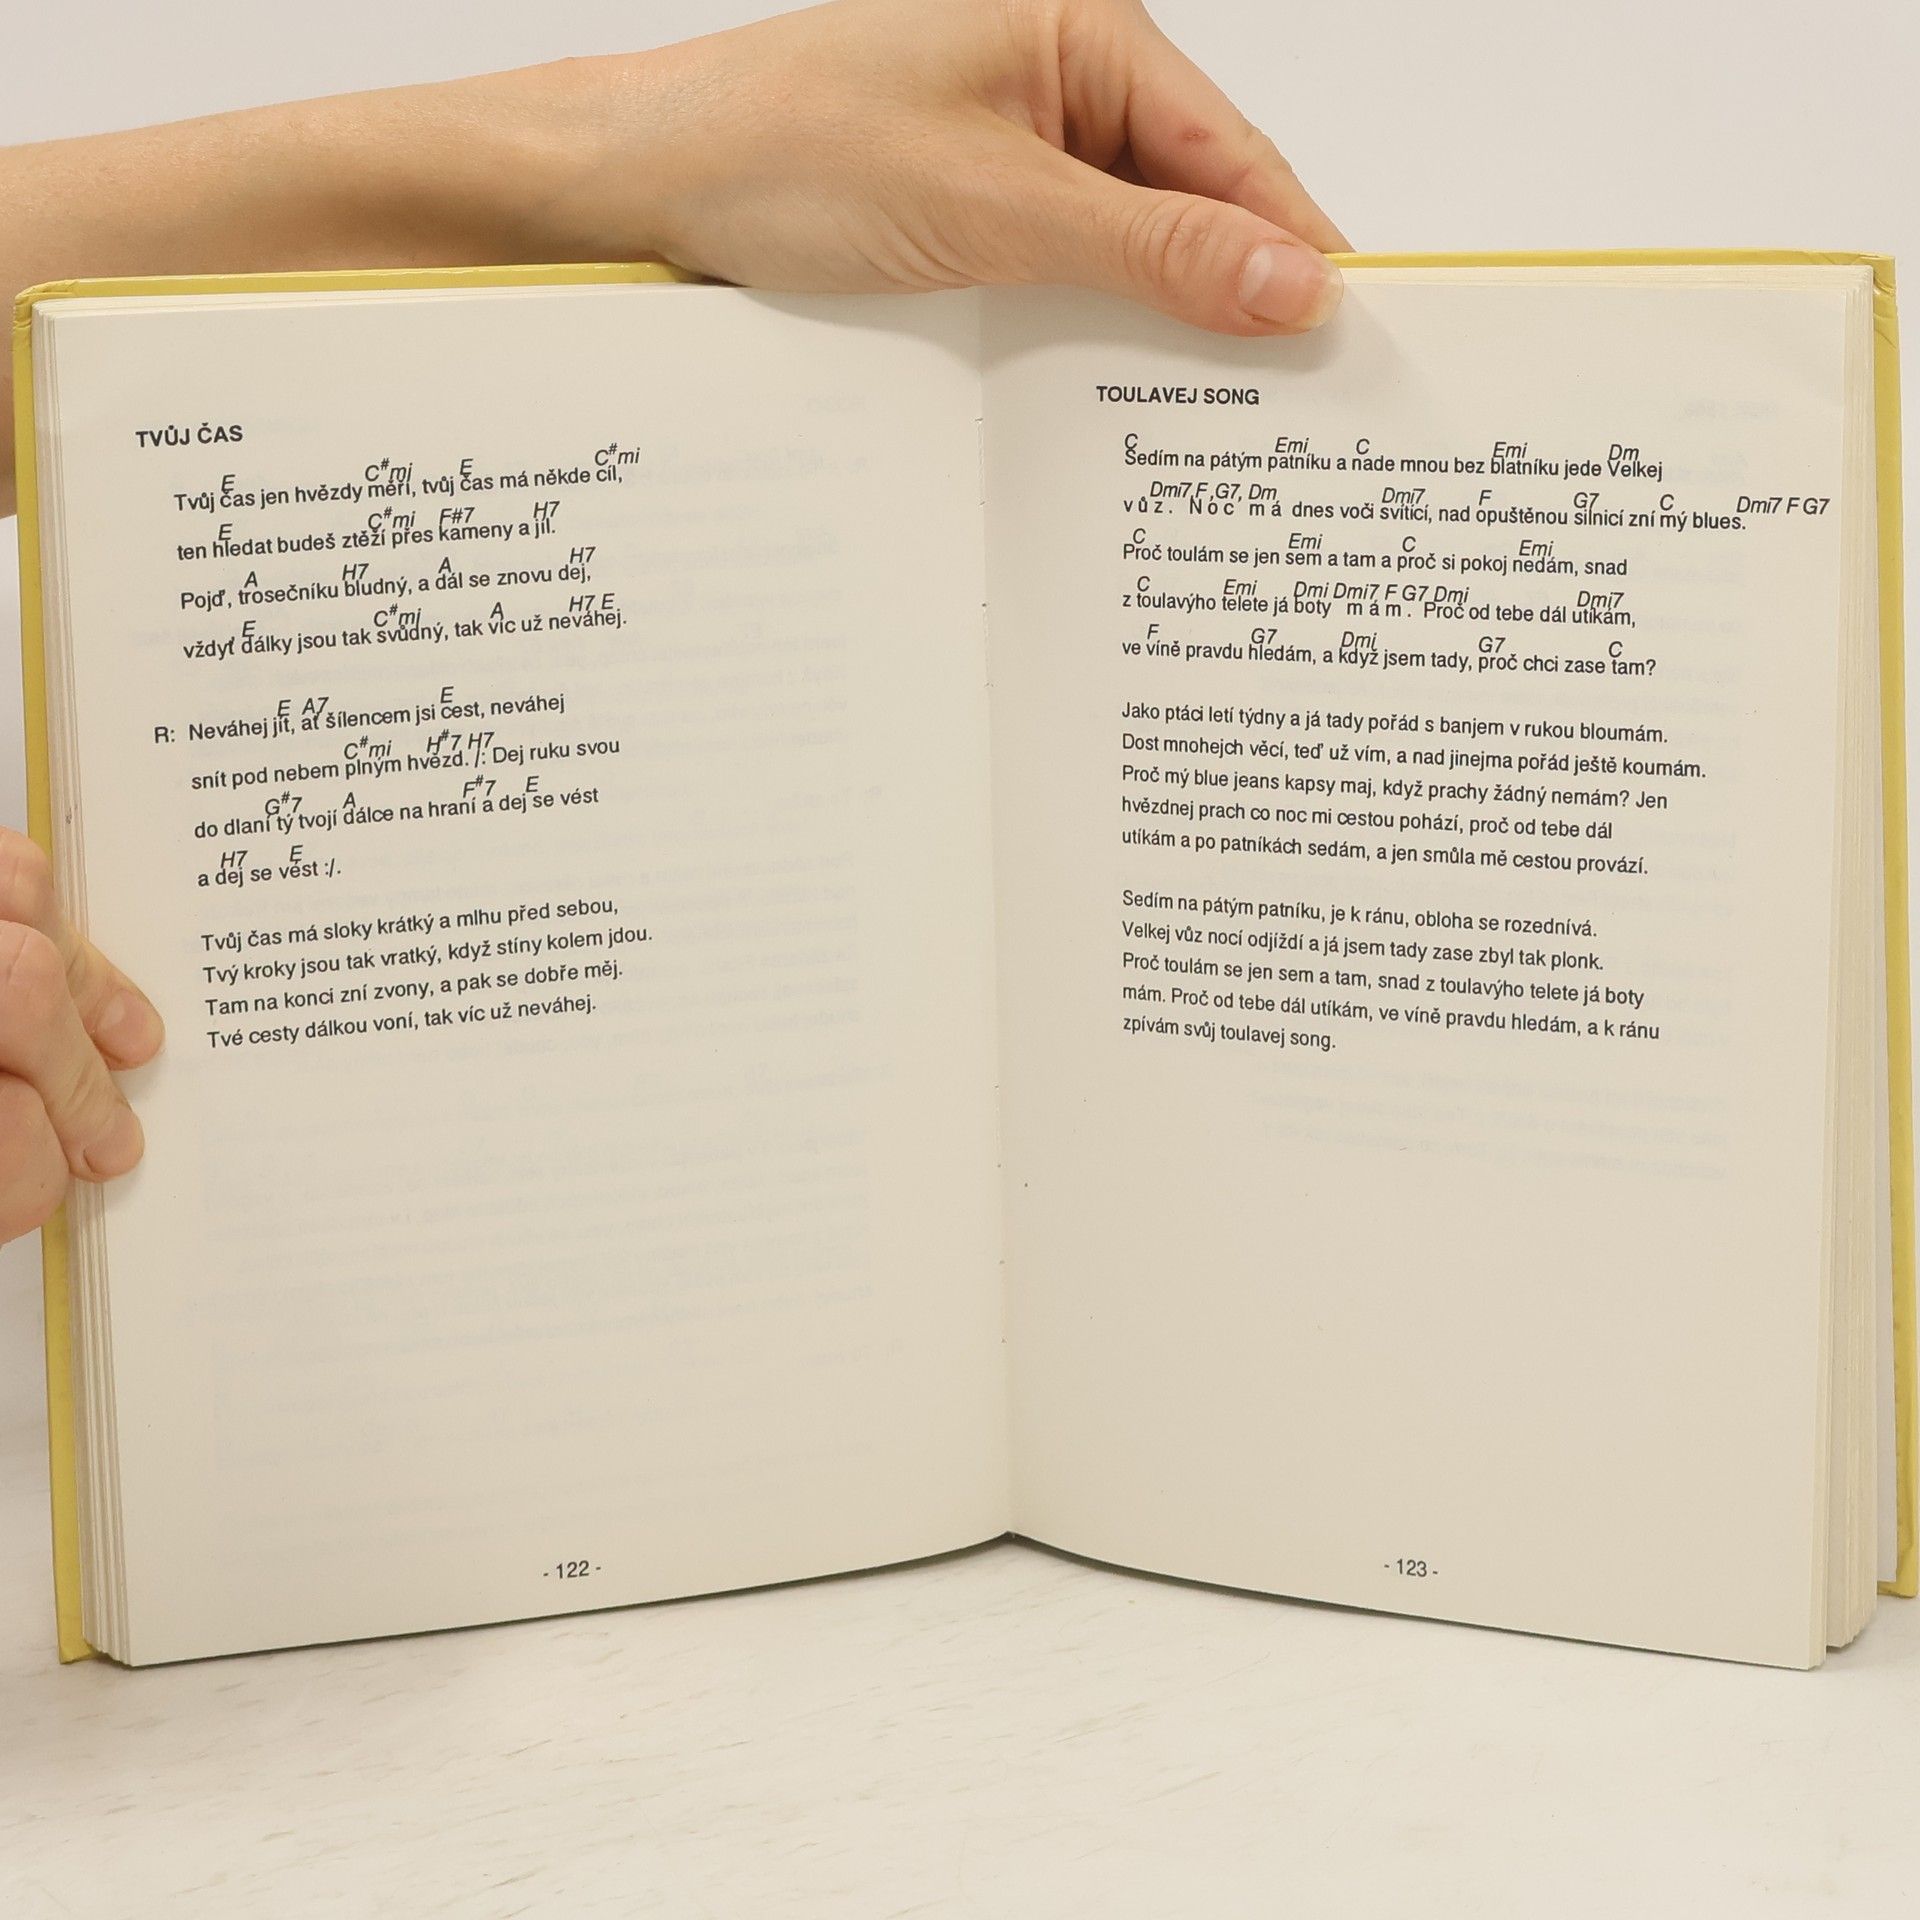 TVŮJ ČAS
E C#mi E C#mi
Tvůj čas jen hvězdy měří, tvůj čas má někde cíl,
E C#mi F#7 H7
ten hledat budeš ztěží přes kameny a jíl.
A H7 A H7
Pojď, trosečníku bludný, a dál se znovu dej,
E C#mi A H7 E
vždyť dálky jsou tak svůdný, tak víc už neváhej.
E A7 E
R: Neváhej jít, ať šílencem jsi cest, neváhej
C#mi H#7 H7
snít pod nebem plným hvězd. /: Dej ruku svou
G#7 A F#7 E
do dlaní tý tvojí dálce na hraní a dej se vést
H7 E
a dej se vést :/.
Tvůj čas má sloky krátký a mlhu před sebou,
Tvý kroky jsou tak vratký, když stíny kolem jdou.
Tam na konci zní zvony, a pak se dobře měj.
Tvé cesty dálkou voní, tak víc už neváhej.
- 122 -
TOULAVEJ SONG
C Emi C Emi Dm
Sedím na pátým patníku a nade mnou bez blatníku jede Velkej
Dmi7 F, G7, Dm Dmi7 F G7 C Dmi7 F G7
vůz. Noc má dnes voči svítící, nad opuštěnou silnicí zní mý blues.
C Emi C Emi
Proč toulám se jen sem a tam a proč si pokoj nedám, snad
C Emi Dmi Dmi7 F G7 Dmi Dmi7
z toulavýho telete já boty mám. Proč od tebe dál utíkám,
F G7 Dmi G7 C
ve víně pravdu hledám, a když jsem tady, proč chci zase tam?
Jako ptáci letí týdny a já tady pořád s banjem v rukou bloumám.
Dost mnohejch věcí, teď už vím, a nad jinejma pořád ještě koumám.
Proč mý blue jeans kapsy maj, když prachy žádný nemám? Jen
hvězdnej prach co noc mi cestou pohází, proč od tebe dál
utíkám a po patníkách sedám, a jen smůla mě cestou provází.
Sedím na pátým patníku, je k ránu, obloha se rozednívá.
Velkej vůz nocí odjíždí a já jsem tady zase zbyl tak plonk.
Proč toulám se jen sem a tam, snad z toulavýho telete já boty
mám. Proč od tebe dál utíkám, ve víně pravdu hledám, a k ránu
zpívám svůj toulavej song.
- 123 -